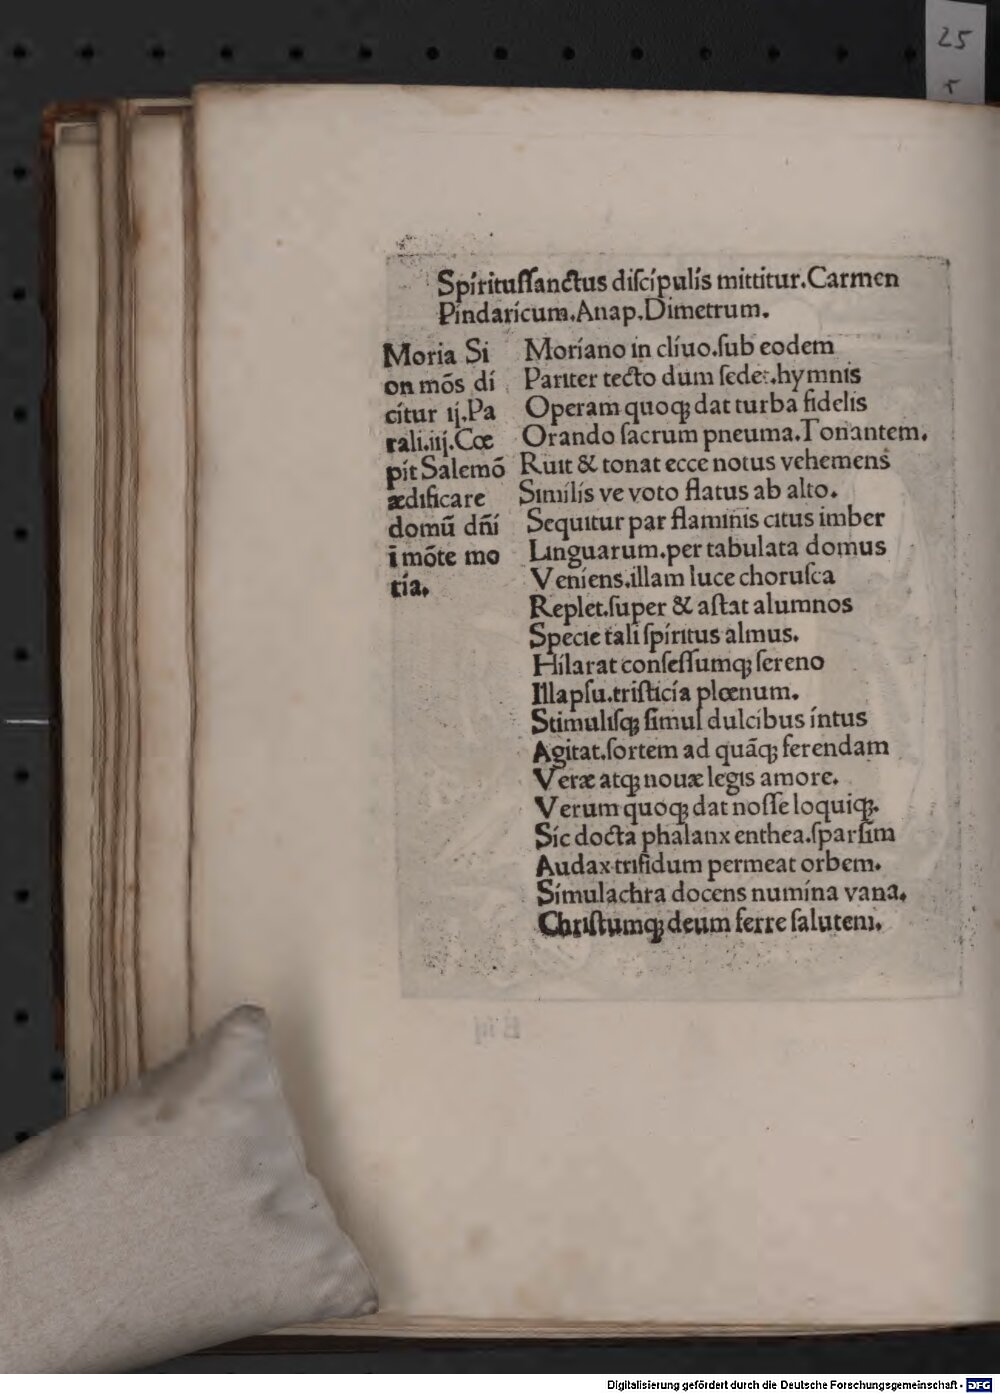 25
Spirituſſanctus diſcipulis mittitur.Carmen
Pindaricum.Anap.Dimetrum.
Moria Si
on mõs di
citur ij.Pa
rali.iij.Cœ
pit Salemõ
ædificare
domũ dñi
ĩ mõte mo
ria.
Moriano in cliuo.ſub eodem
Pariter tecto dum ſedet.hymnis
Operam quoqꝫ dat turba fidelis
Orando ſacrum pneuma.Tonantem.
Ruit & tonat ecce notus vehemens
Similis ve voto flatus ab alto.
Sequitur par flaminis citus imber
Linguarum.per tabulata domus
Veniens.illam luce choruſca
Replet.ſuper & aſtat alumnos
Specie tali ſpiritus almus.
Hilarat conſeſſumqꝫ ſereno
Illapſu.triſticia plœnum.
Stimuliſqꝫ ſimul dulcibus intus
Agitat.ſortem ad quãqꝫ ferendam
Veræ atqꝫ nouæ legis amore.
Verum quoqꝫ dat noſſe loquiqꝫ.
Sic docta phalanx enthea.ſparſim
Audax trifidum permeat orbem.
Simulachra docens numina vana.
Chriſtumqꝫ deum ferre ſalutem.
Digitalisierung gefördert durch die Deutsche Forschungsgemeinschaft - DFG